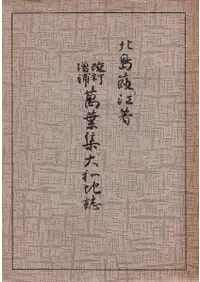 北島葭江著
改訂
増補
萬葉集大和地誌